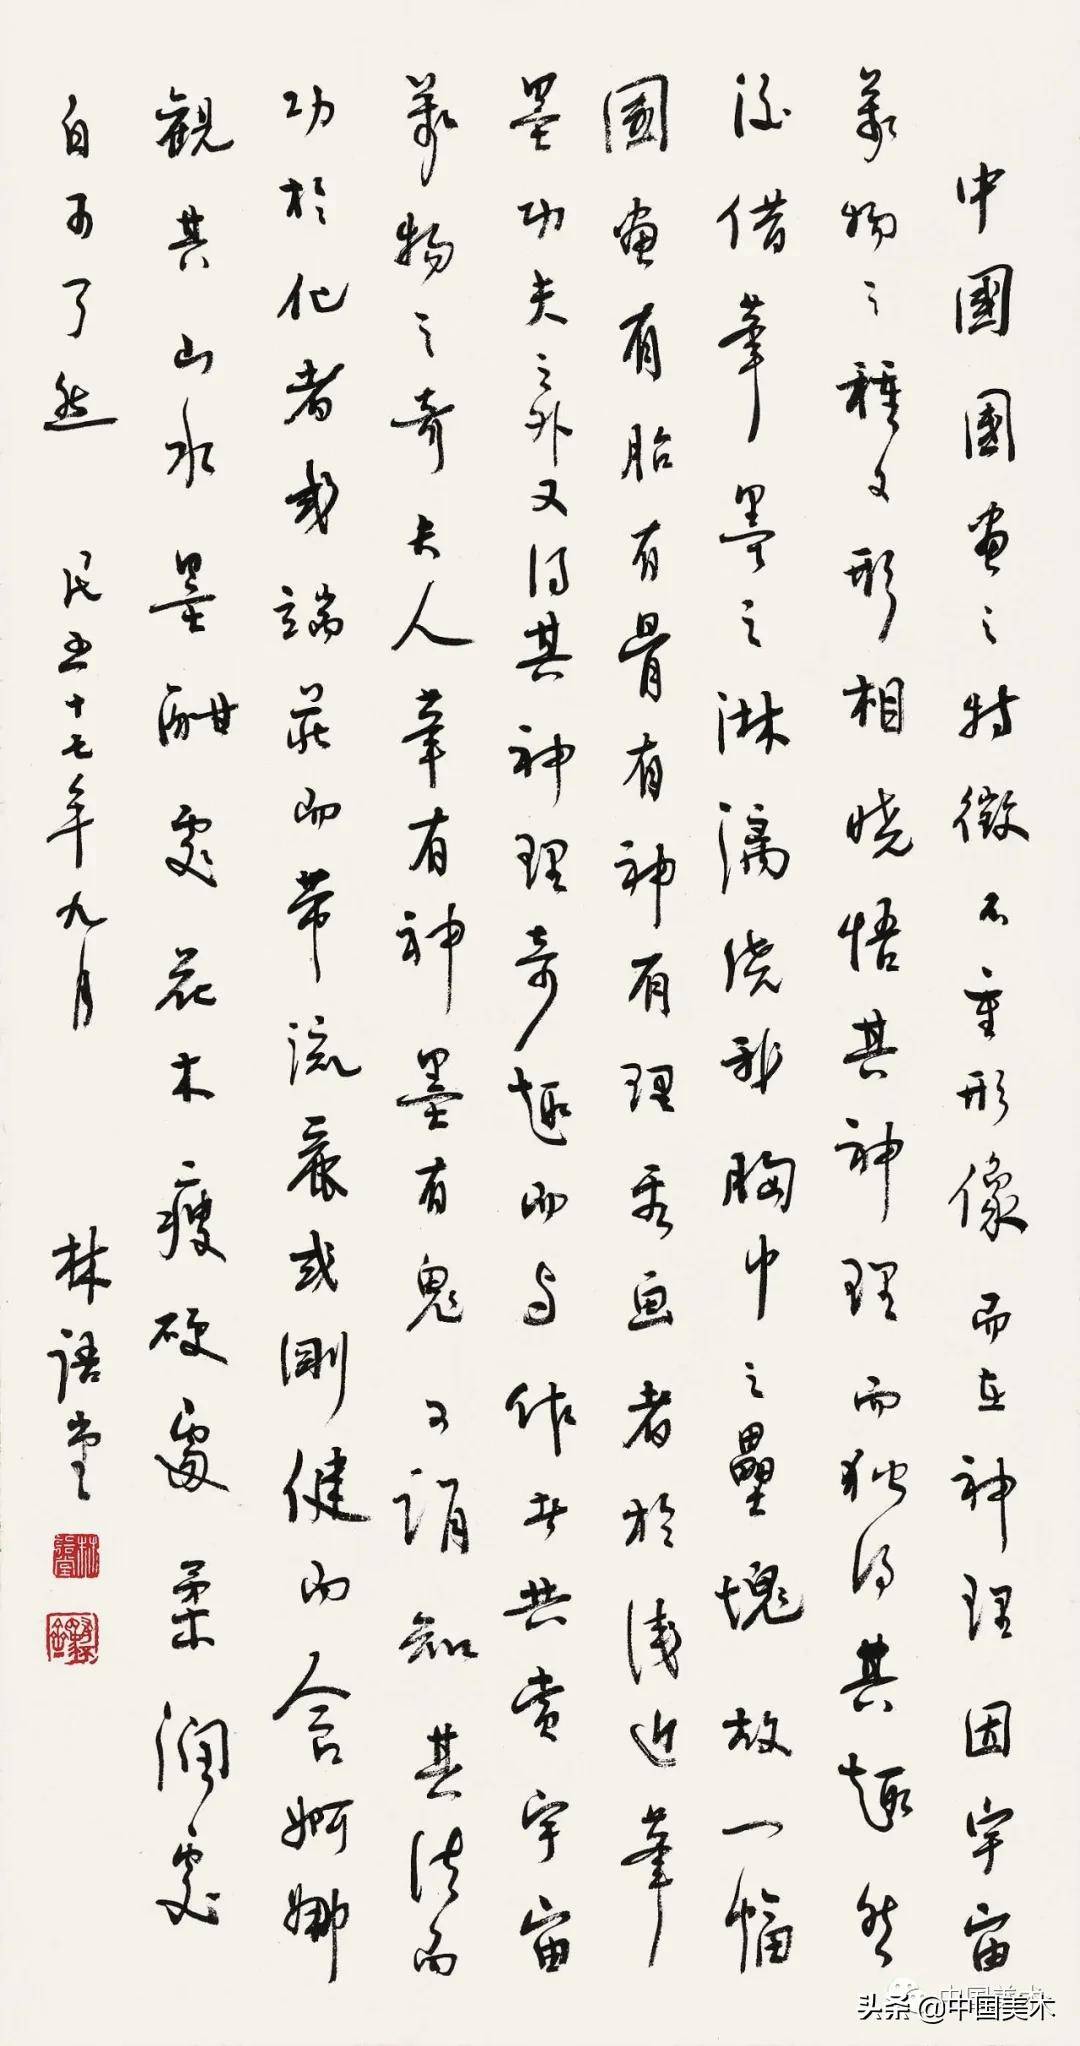 中國國畫之特徵不重形像而在神理因宇宙
萬物之種々形相曉悟其神理而獨得其趣然
後借筆墨之淋漓澆我胸中之壘塊故一幅
國畫有胎有骨有神有理看畫者於淺近筆
墨功夫之外又得其神理奇趣而與作者共賞宇宙
萬物之奇夫人筆有神墨有鬼可謂知其法而
功於化者或端莊而帶流麗或剛健而含婀娜
觀其山水墨酣處花木瘦硬處柔潤處
自可了然 民五十七年九月 林語堂
中国美术
头条 @中国美术